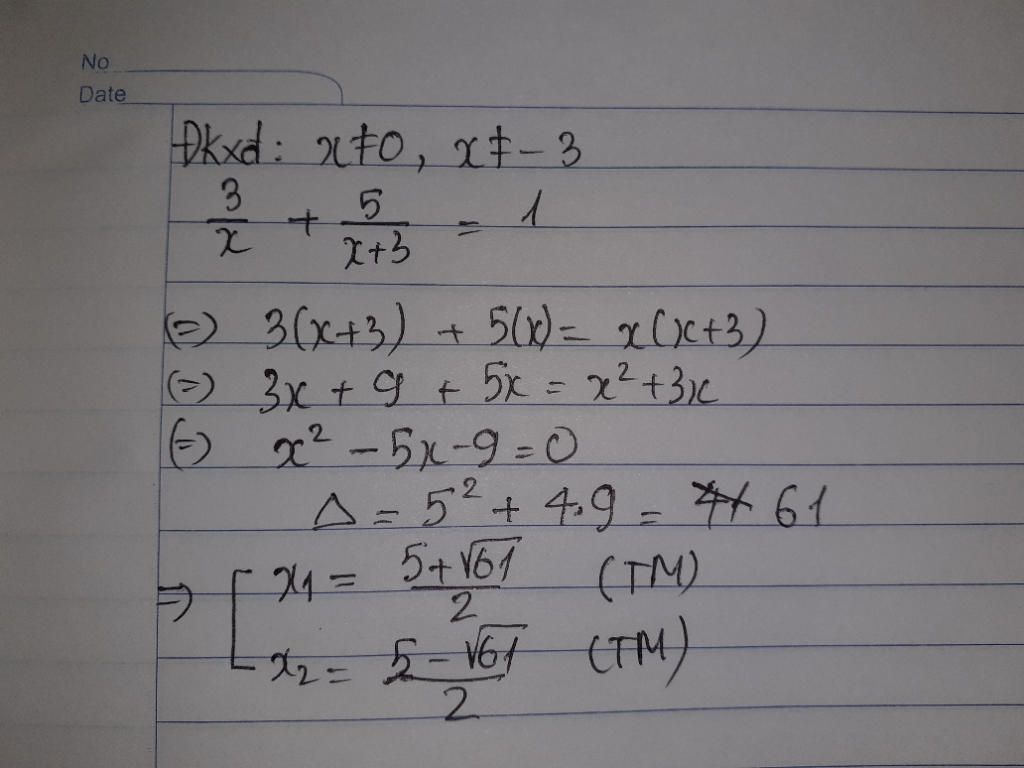 No
Date
Đkxđ: x ≠ 0, x ≠ - 3
3/x + 5/(x+3) = 1
(=) 3(x+3) + 5(x) = x(x+3)
(=) 3x + 9 + 5x = x² + 3x
(=) x² - 5x - 9 = 0
Δ = 5² + 4.9 = 61
=> [ x₁ = (5+√61)/2 (TM)
x₂ = (5-√61)/2 (TM)